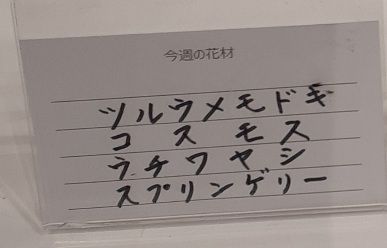 今週の花材
ツルウメモドキ
コスモス
ウチワヤシ
スプリンゲリー